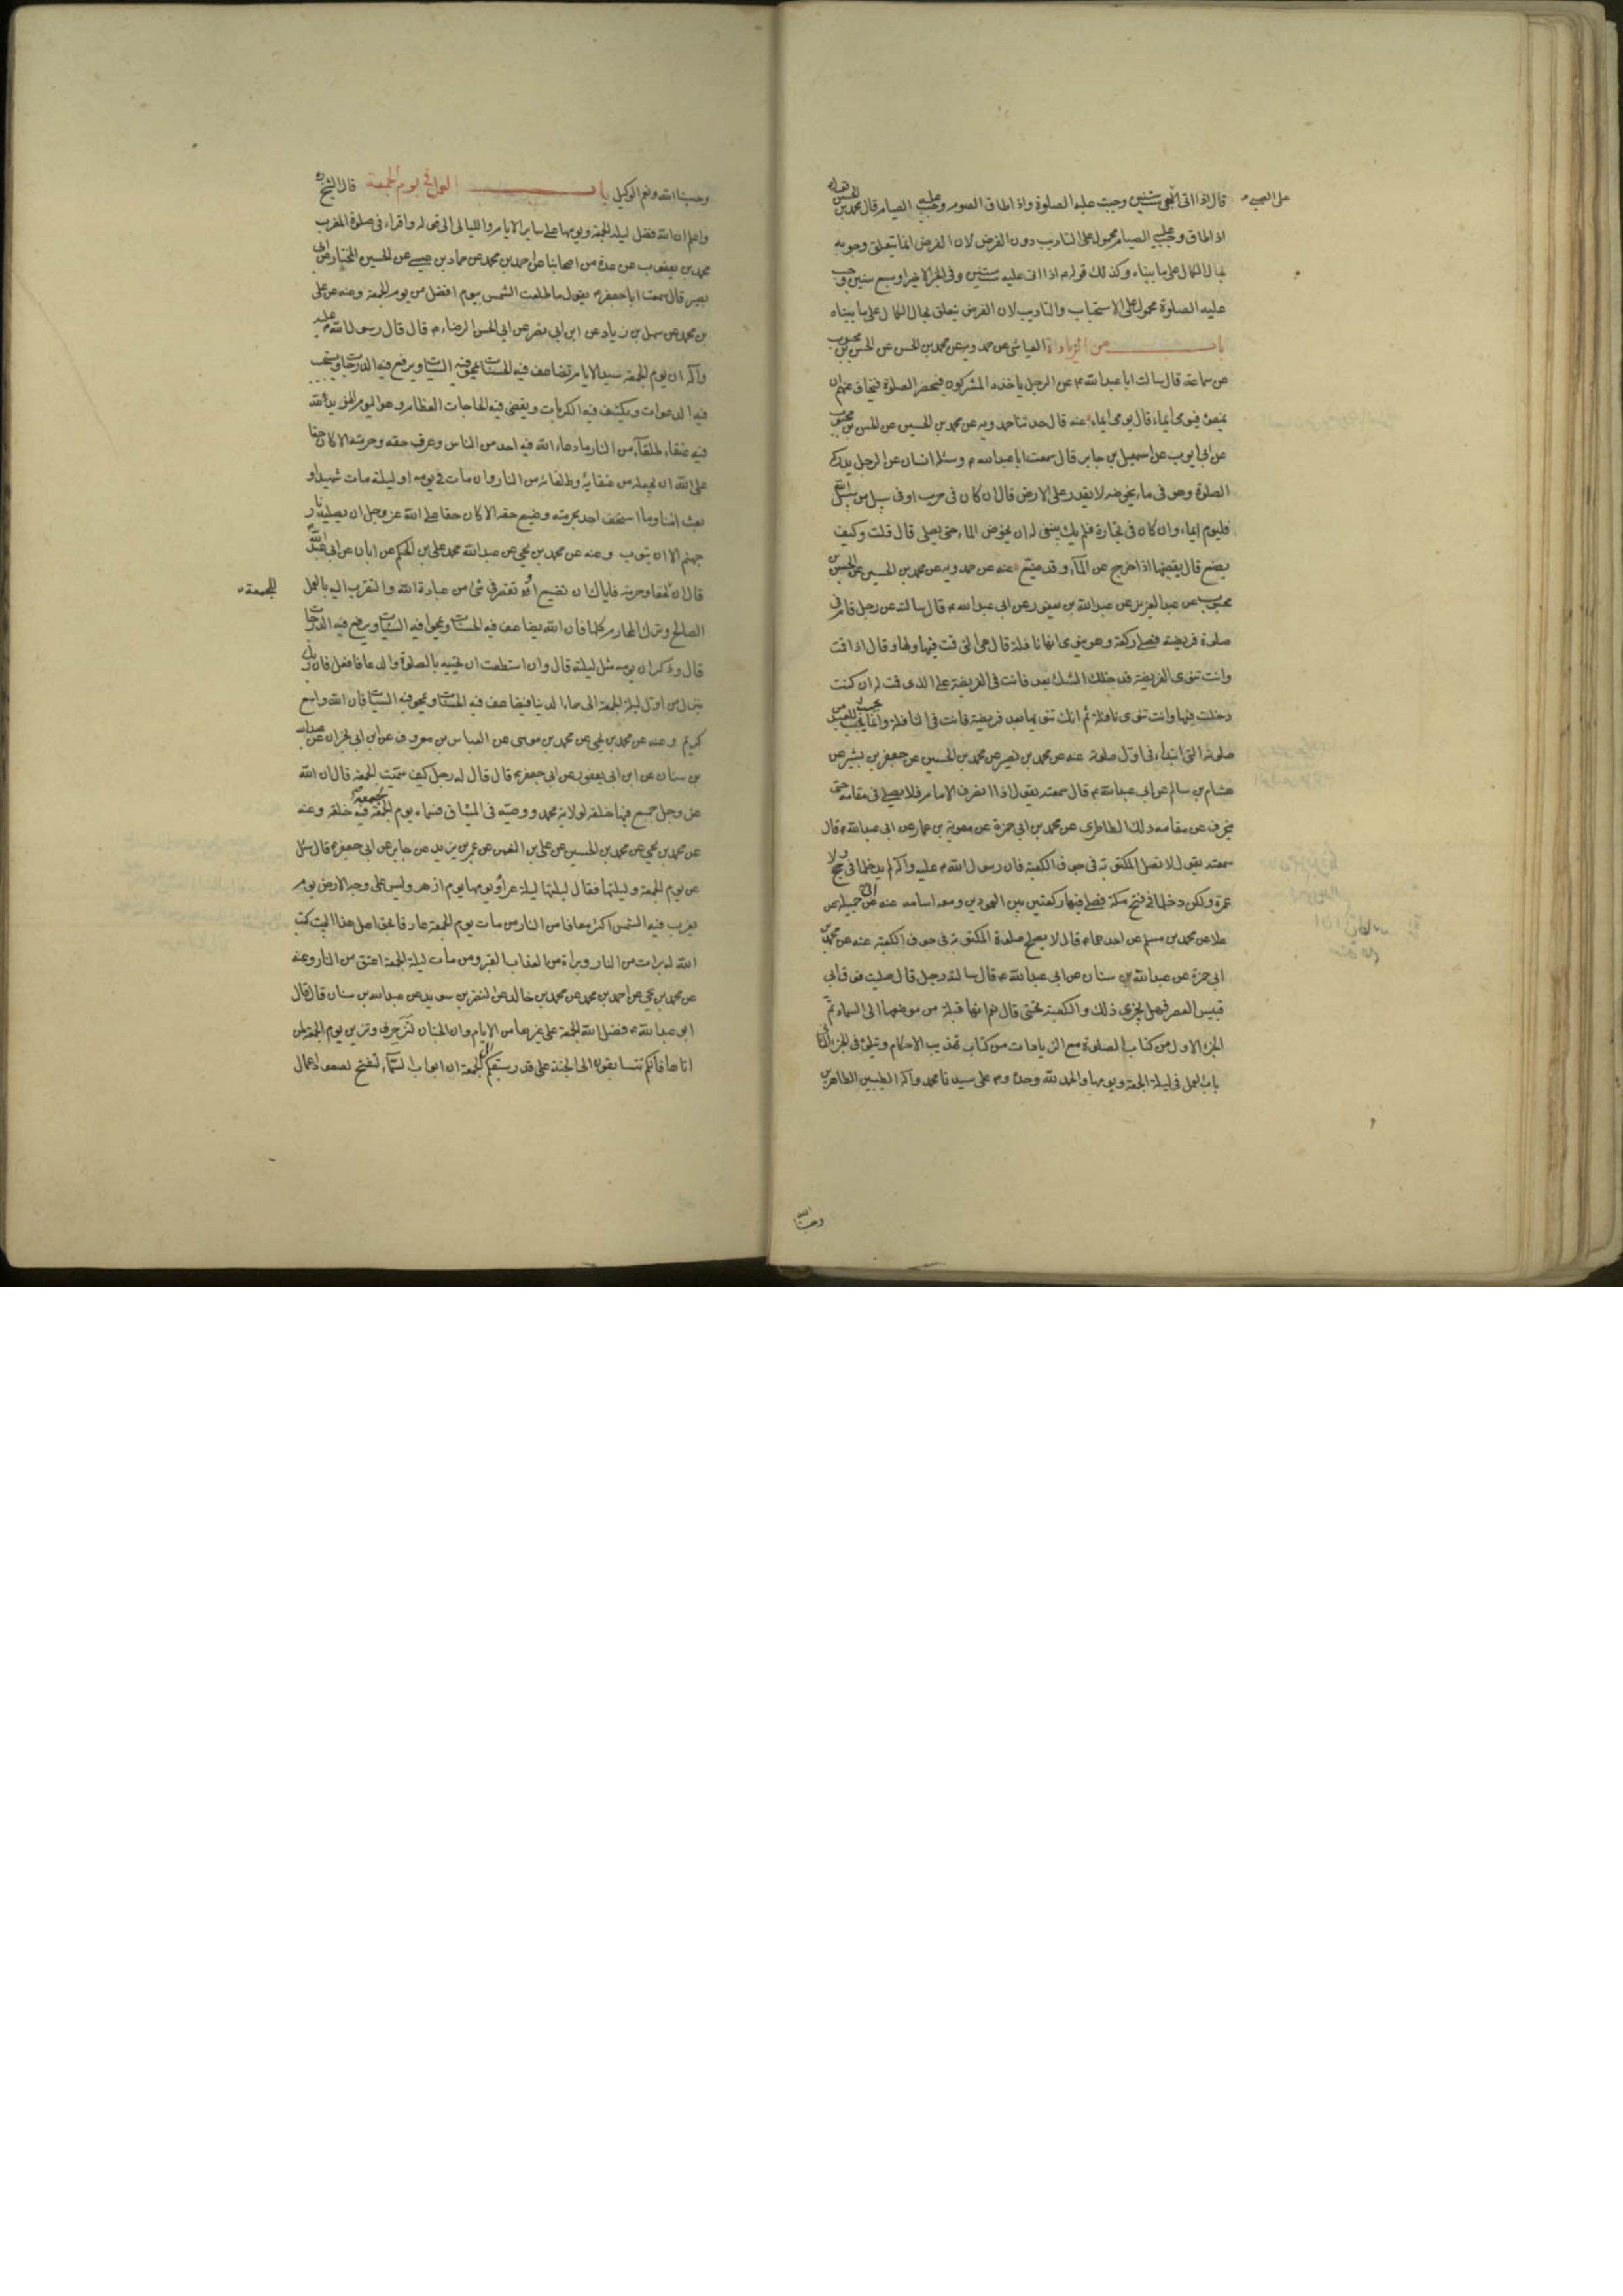 قال اذا اتى للصبي ست سنين وجبت عليه الصلوة واذا اطاق الصوم وجب عليه الصيام قال محمد بن الحسن
على الصبي
اذا اطاق وجب عليه الصيام محمول على التاديب دون الفرض لان الفرض انما يتعلق وجوبه
بحال الكمال على ما بيناه وكذلك قوله اذا اتى عليه ست سنين وفي الخبر الاخير او سبع سنين وجب
عليه الصلوة محمول على الاستحباب والتاديب لان الفرض يتعلق بحال الكمال على ما بيناه
باب من الزيادات العياشي عن حمدويه عن محمد بن الحسن عن الحسن بن محبوب
عن سماعة قال سالت ابا عبد الله عن الرجل ياخذه المشركون فيحضر الصلوة فيخاف منهم ان
يمنعوه فيومي ايماء قال يومي ايماء عنه قال حدثنا حمدويه عن محمد بن الحسين عن الحسن بن محبوب
عن ابي ايوب عن اسمعيل بن جابر قال سمعت ابا عبد الله وسئله انسان عن الرجل يدركه
الصلوة وهو في ماء يخوضه لا يقدر على الارض قال ان كان في حرب او في سبيل من سبل الله
فليوم ايماء وان كان في تجارة فلم يك ينبغي له ان يخوض الماء حتى يصلي قال قلت وكيف
يصنع قال يقضيها اذا خرج من الماء وقد ضيع عنه عن حمدويه عن محمد بن الحسين عن الحسن بن
محبوب عن عبد العزيز عن عبد الله بن ابي يعفور عن ابي عبد الله قال سالته عن رجل قام في
صلوة فريضة فصلى ركعة وهو ينوي انها نافلة قال هي التي قمت فيها ولها وقال اذا قمت
وانت تنوي الفريضة فدخلك الشك بعد فانت في الفريضة على الذي قمت له وان كنت
دخلت فيها وانت تنوي نافلة ثم انك تنويها بعد فريضة فانت في النافلة وانما يحسب للعبد من
صلوته التي ابتداء في اول صلوته عنه عن محمد بن نصير عن محمد بن الحسين عن جعفر بن بشير عن
هشام بن سالم عن ابي عبد الله قال سمعته يقول اذا انصرف الامام فلا يصلي في مقامه حتى
ينحرف عن مقامه ذلك الطاطري عن محمد بن ابي حمزة عن معوية بن عمار عن ابي عبد الله قال
سمعته يقول لا تصل المكتوبة في جوف الكعبة فان رسول الله عليه واله لم يدخلها في حج ولا
عمرة ولكن دخلها في فتح مكة فصلى فيها ركعتين بين العمودين ومعه اسامة عنه عن ابي جميلة عن
علا عن محمد بن مسلم عن احدهما قال لا يصلح صلوة المكتوبة في جوف الكعبة عنه عن محمد بن
ابي حمزة عن عبد الله بن سنان عن ابي عبد الله قال سالته رجل قال صليت فوق ابي
قبيس العصر فهل يجزي ذلك والكعبة تحتي قال نعم انها قبلة من موضعها الى السماء تم
الجزء الاول من كتاب الصلوة مع الزيادات من كتاب تهذيب الاحكام ويتلوه في الجزء الثاني
باب العمل في ليلة الجمعة ويومها والحمد لله وحده وصلى على سيدنا محمد واله الطيبين الطاهرين
وحسبنا الله
وحسبنا الله ونعم الوكيل باب العمل في يوم الجمعة قال الشيخ ره
واعلم ان الله فضل ليلة الجمعة ويومها على ساير الايام والليالى الى قوله واقراء في صلوة المغرب
محمد بن يعقوب عن عدة من اصحابنا عن احمد بن محمد عن حماد بن عيسى عن الحسين المختار عن ابي
بصير قال سمعت ابا جعفر يقول ما طلعت الشمس بيوم افضل من يوم الجمعة وعنه عن علي
بن محمد عن سهل بن زياد عن ابن ابي نصر عن ابي الحسن الرضا قال قال رسول الله عليه
واله ان يوم الجمعة سيد الايام تضاعف فيه الحسنات ويمحو فيه السيئات ويرفع فيه الدرجات ويستجب
فيه الدعوات ويكشف فيه الكربات ويقضى فيه الحاجات العظام وهو اليوم المزيد لله
فيه عتقاء وطلقاء من النار ما دعا الله فيه احد من الناس وعرف حقه وحرمته الا كان حقا
على الله ان يجعله من عتقائه وطلقائه من النار وان مات في يومه او ليلته مات شهيدا و
بعث امنا وما استخف احد بحرمته وضيع حقه الا كان حقا على الله عز وجل ان يصليه نار
جهنم الا ان يتوب وعنه عن محمد بن يحيى عن عبد الله محمد علي بن الحكم عن ابان عن ابي عبد الله
قال ان للجمعة حقا وحرمة فاياك ان تضيع او تقصر في شئ من عبادة الله والتقرب اليه بالعمل
للجمعة
الصالح وترك المحارم كلها فان الله يضاعف فيه الحسنات ويمحو فيه السيئات ويرفع فيه الدرجات
قال وذكر ان يومه مثل ليلته قال وان استطعت ان تحييه بالصلوة والدعا فافعل فان ربك
ينزل من اول ليلة الجمعة الى سماء الدنيا فيضاعف فيه الحسنات ويمحو فيه السيئات فان الله واسع
كريم وعنه عن محمد بن يحيى عن محمد بن موسى عن العباس بن معروف عن ابن ابي نجران عن عبد الله
بن سنان عن ابن ابي يعفور عن ابي جعفر قال قال له رجل كيف سميت الجمعة قال ان الله
عز وجل جمع فيها خلقه لولاية محمد ووصيه في الميثاق فسماه يوم الجمعة لجمعه فيه خلقه وعنه
عن محمد بن يحيى عن محمد بن الحسين عن علي بن النعمن عن عمر بن يزيد عن جابر عن ابي جعفر قال سئل
عن يوم الجمعة وليلتها فقال ليلتها ليلة غراء ويومها يوم ازهر وليس على وجه الارض يوم
تغرب فيه الشمس اكثر معافا من النار من مات يوم الجمعة عارفا بحق اهل هذا البيت كتب
الله له برات من النار وبراة من العذاب القبر ومن مات ليلة الجمعة اعتق من النار وعنه
عن محمد بن يحيى عن احمد بن محمد عن محمد بن خالد عن النضر بن سويد عن عبد الله بن سنان قال قال
ابو عبد الله فضل الله الجمعة على غيرها من الايام وان الجنان لتزخرف وتزين يوم الجمعة لمن
اتاها فانكم تتسابقون الى الجنة على قدر سبقكم الى الجمعة وان ابواب السماء لتفتح لصعود اعمال